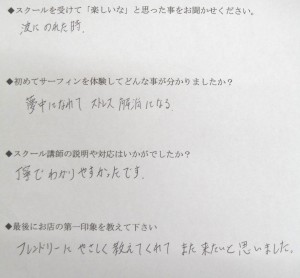 ◆スクールを受けて「楽しいな」と思った事をお聞かせください。
波にのれた時.
◆初めてサーフィンを体験してどんな事が分かりましたか？
夢中になれて ストレス解消になる
◆スクール講師の説明や対応はいかがでしたか？
丁寧でわかりやすかったです.
◆最後にお店の第一印象を教えて下さい
フレンドリーに やさしく教えてくれて また来たいと思いました.